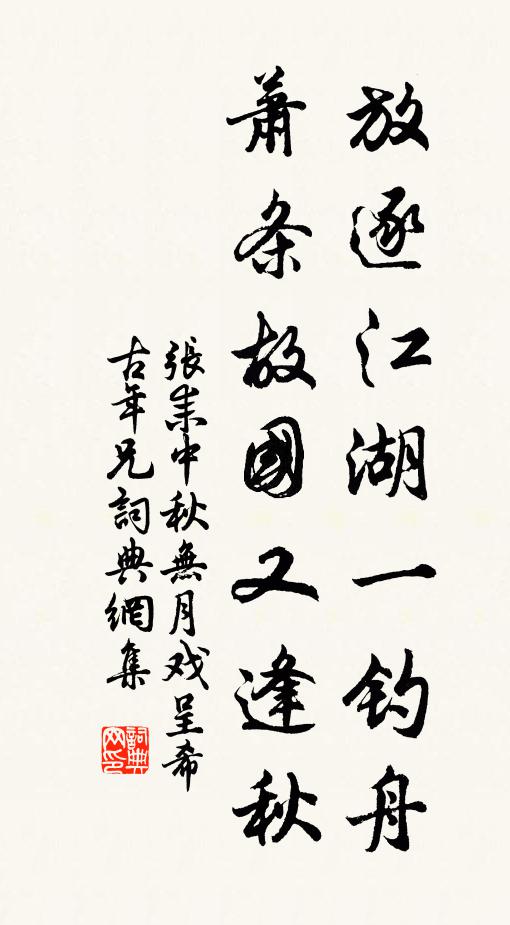 放逐江湖一钓舟
蕭条故國又逢秋
張耒中秋無月戏呈希
古年兄詞典網集
詞典
网印